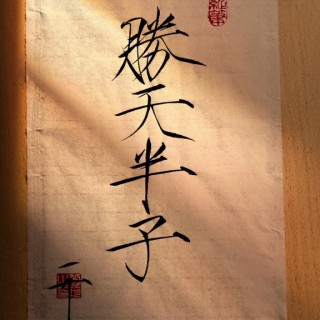 勝天半子